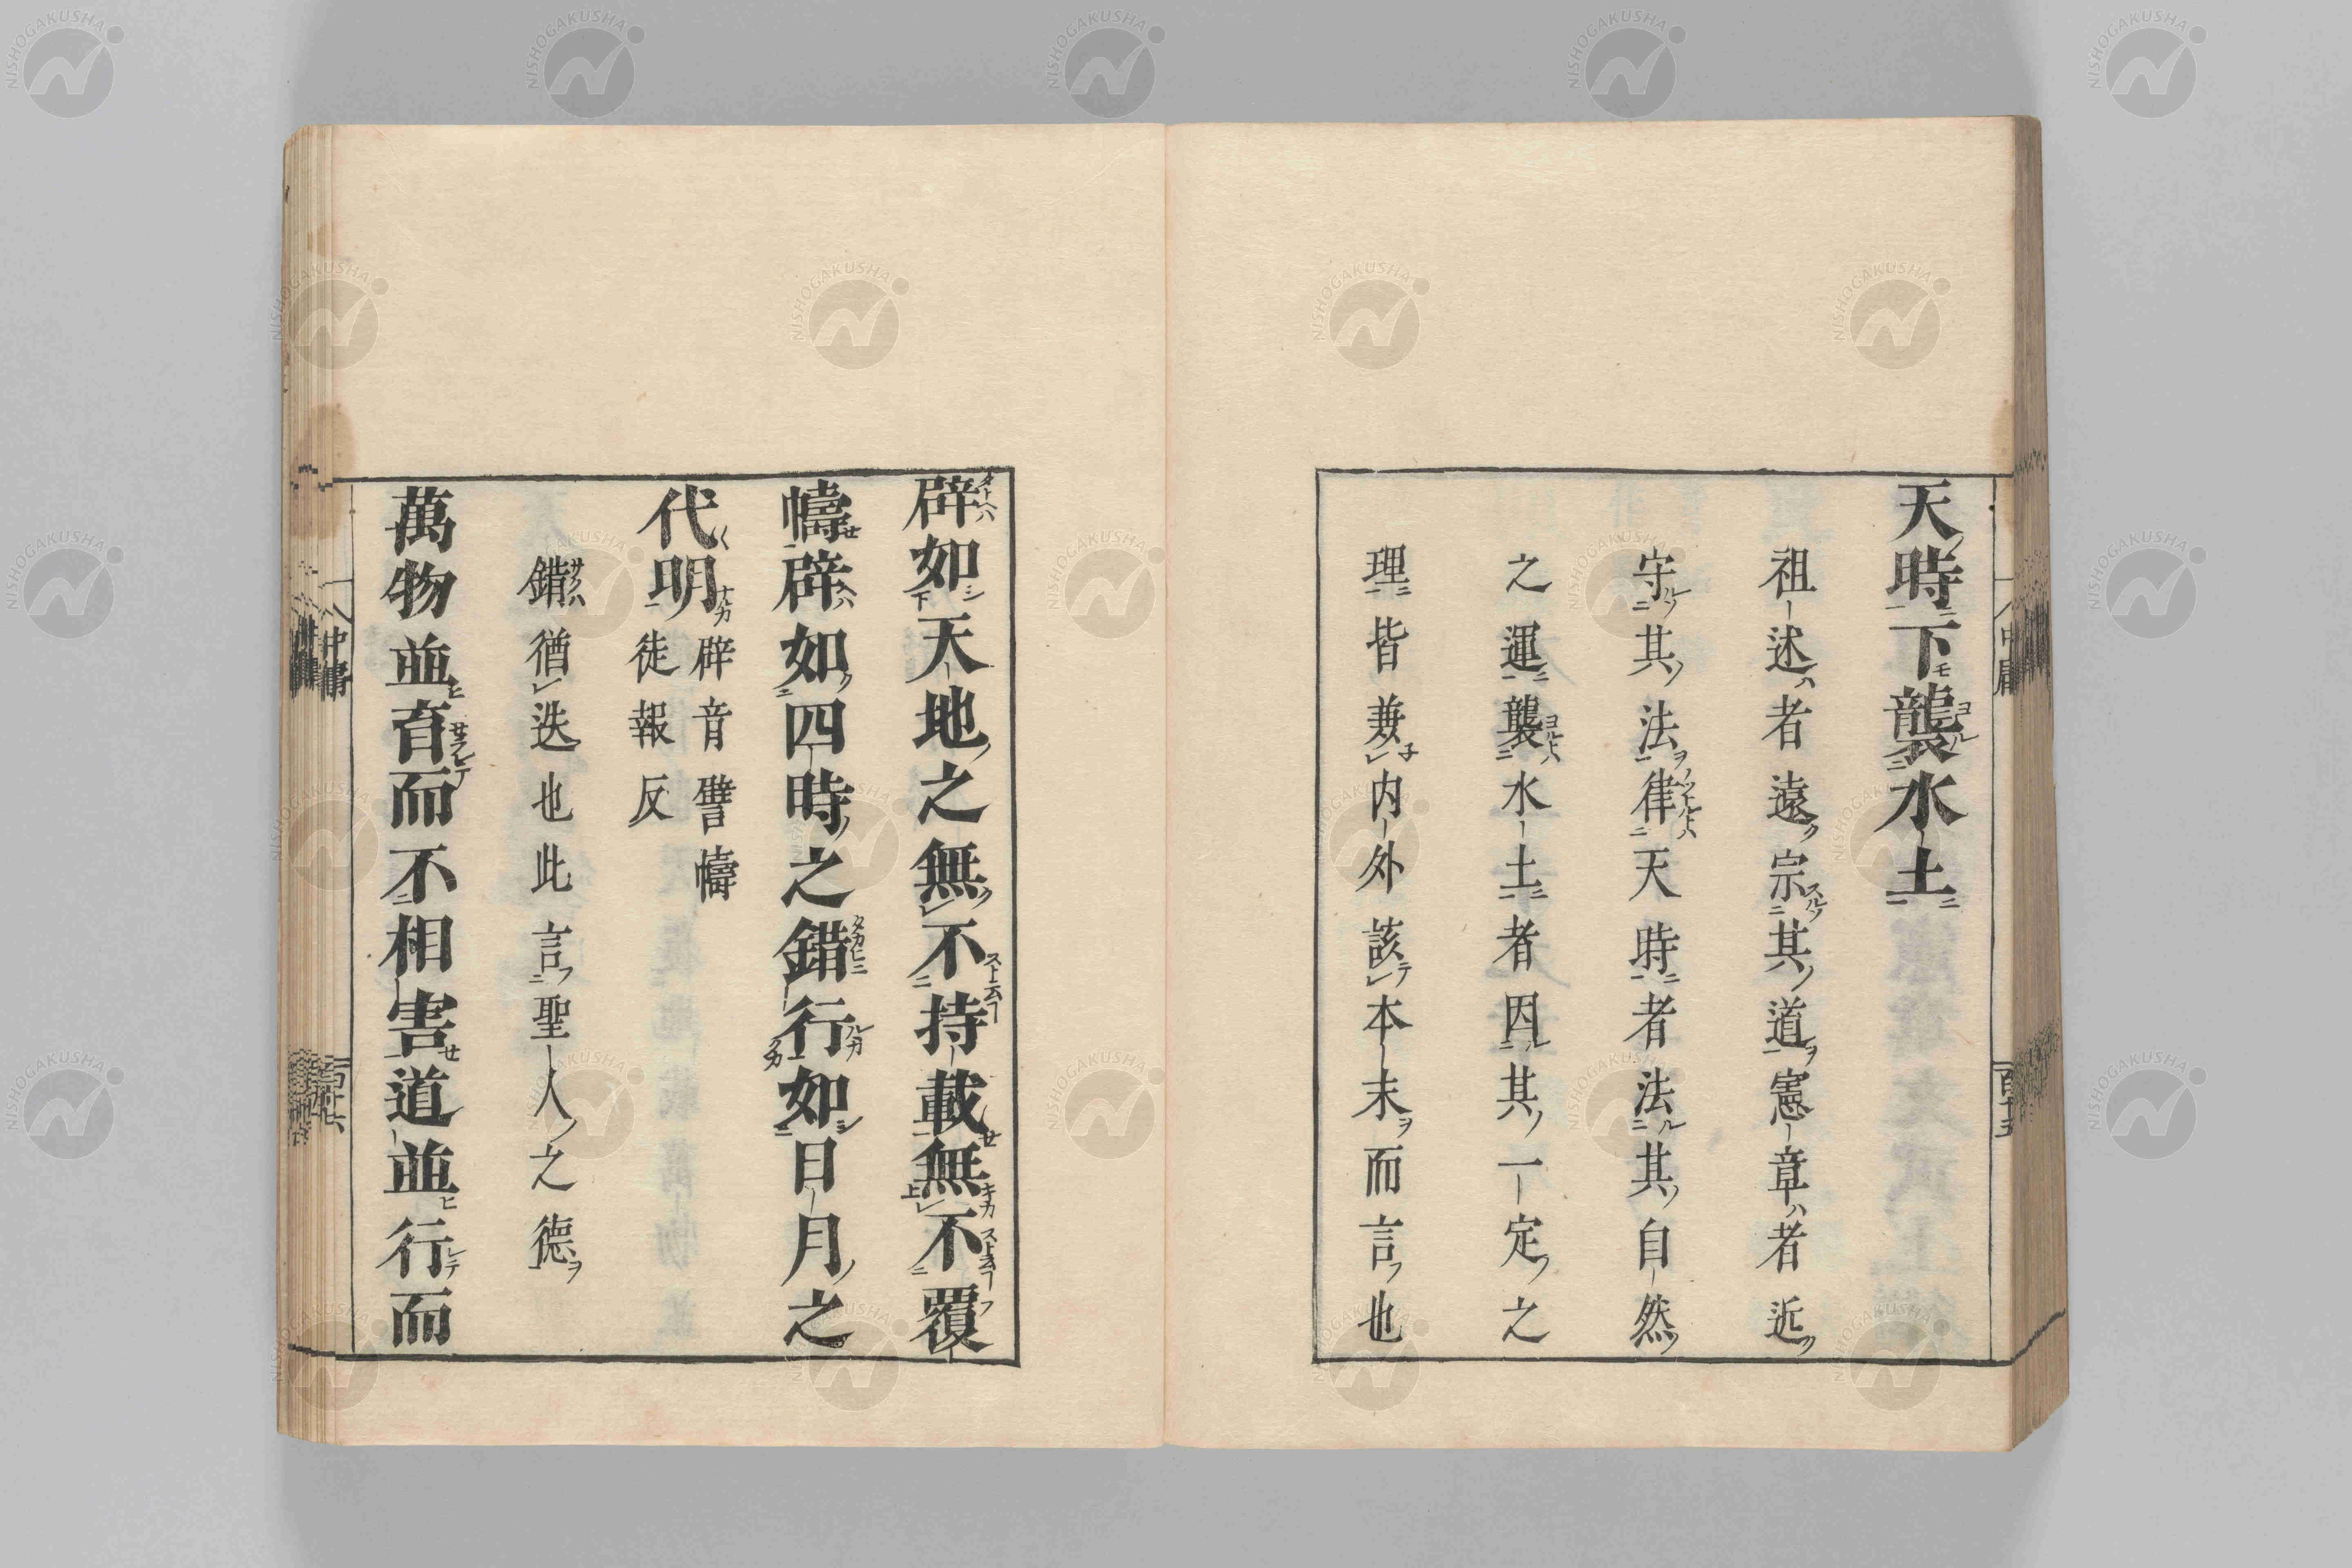 天時下襲水土
祖述者遠宗其道憲章者近
守其法律天時者法其自然
之運襲水土者因其一定之
理皆兼内外該本末而言也
辟如天地之無不持載無不覆
幬辟如四時之錯行如日月之
代明
辟音譬幬
徒報反
錯猶迭也此言聖人之德
萬物並育而不相害道並行而
中庸
百十五
中庸
百十六
NISHOGAKUSHA